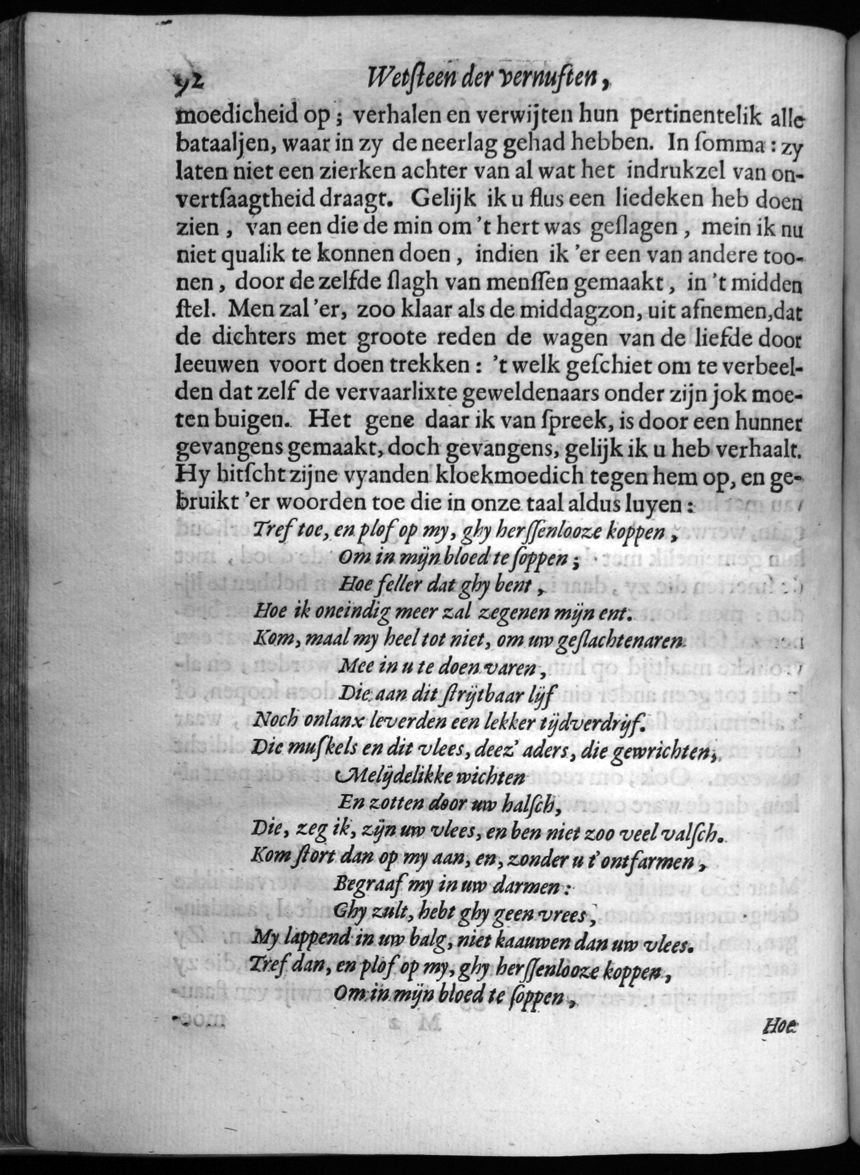 92 Wetſteen der vernuften,
moedicheid op; verhalen en verwijten hun pertinentelik alle
bataaljen, waar in zy de neerlag gehad hebben. In ſomma: zy
laten niet een zierken achter van al wat het indrukzel van on-
vertſaagtheid draagt. Gelijk ik u flus een liedeken heb doen
zien, van een die de min om 't hert was geſlagen, mein ik nu
niet qualik te konnen doen, indien ik 'er een van andere too-
nen, door de zelfde ſlagh van menſſen gemaakt, in 't midden
ſtel. Men zal 'er, zoo klaar als de middagzon, uit afnemen, dat
de dichters met groote reden de wagen van de liefde door
leeuwen voort doen trekken: 't welk geſchiet om te verbeel-
den dat zelf de vervaarlixte geweldenaars onder zijn jok moe-
ten buigen. Het gene daar ik van ſpreek, is door een hunner
gevangens gemaakt, doch gevangens, gelijk ik u heb verhaalt.
Hy hitſcht zijne vyanden kloekmoedich tegen hem op, en ge-
bruikt 'er woorden toe die in onze taal aldus luyen:
Tref toe, en plof op my, ghy herſſenlooze koppen,
Om in mijn bloed te ſoppen;
Hoe feller dat ghy bent,
Hoe ik oneindig meer zal zegenen mijn ent.
Kom, maal my heel tot niet, om uw geſlachtenaren
Mee in u te doen varen,
Die aan dit ſtrijtbaar lijf
Noch onlanx leverden een lekker tijdverdrijf.
Die muſkels en dit vlees, deez' aders, die gewrichten,
Melijdelikke wichten
En zotten door uw halſch,
Die, zeg ik, zijn uw vlees, en ben niet zoo veel valſch.
Kom ſtort dan op my aan, en, zonder u t' ontfarmen,
Begraaf my in uw darmen:
Ghy zult, hebt ghy geen vrees,
My lappend in uw balg, niet kaauwen dan uw vlees.
Tref dan, en plof op my, ghy herſſenlooze koppen,
Om in mijn bloed te ſoppen,
Hoe